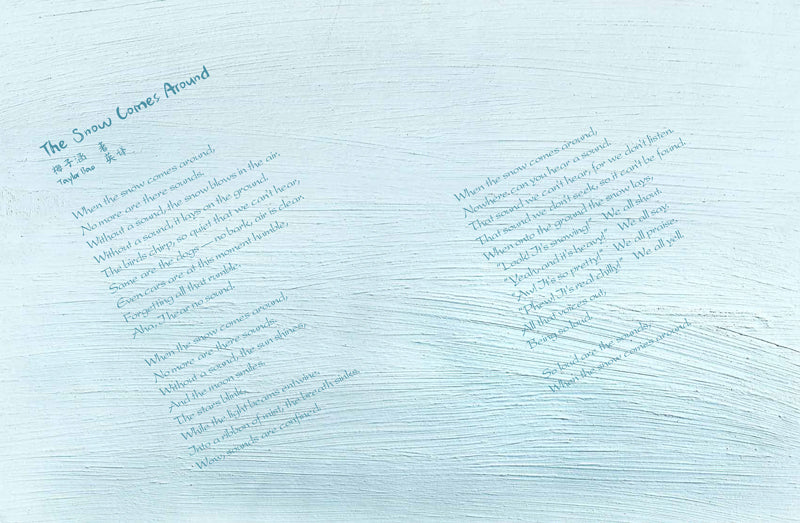 The Snow Comes Around
梅子涵 著
Taylor Bao 英译
When the snow comes around,
No more are there sounds.
Without a sound, the snow blows in the air.
Without a sound, it lays on the ground.
The birds chirp, so quiet that we can't hear,
Same are the dogs — no bark, air is clear.
Even cars are at this moment humble,
Forgetting all that rumble.
Aha, The're no sound.
When the snow comes around,
No more are there sounds.
Without a sound, the sun shines,
And the moon smiles.
The stars blink,
While the light beams entwine,
Into a ribbon of mist, the breath sinks.
Wow, sounds are confined.
When the snow comes around,
Nowhere can you hear a sound.
That sound we can't hear, for we don't listen.
That sound we don't seek, so it can't be found.
When onto the ground the snow lays,
"Look! It's snowing!" We all shout.
"Yeah, and it's heavy!" We all say.
"Aw! It's so pretty!" We all praise.
"Phew! It's real chilly!" We all yell.
All that voices out,
Being so loud.
So loud are the sounds,
When the snow comes around.